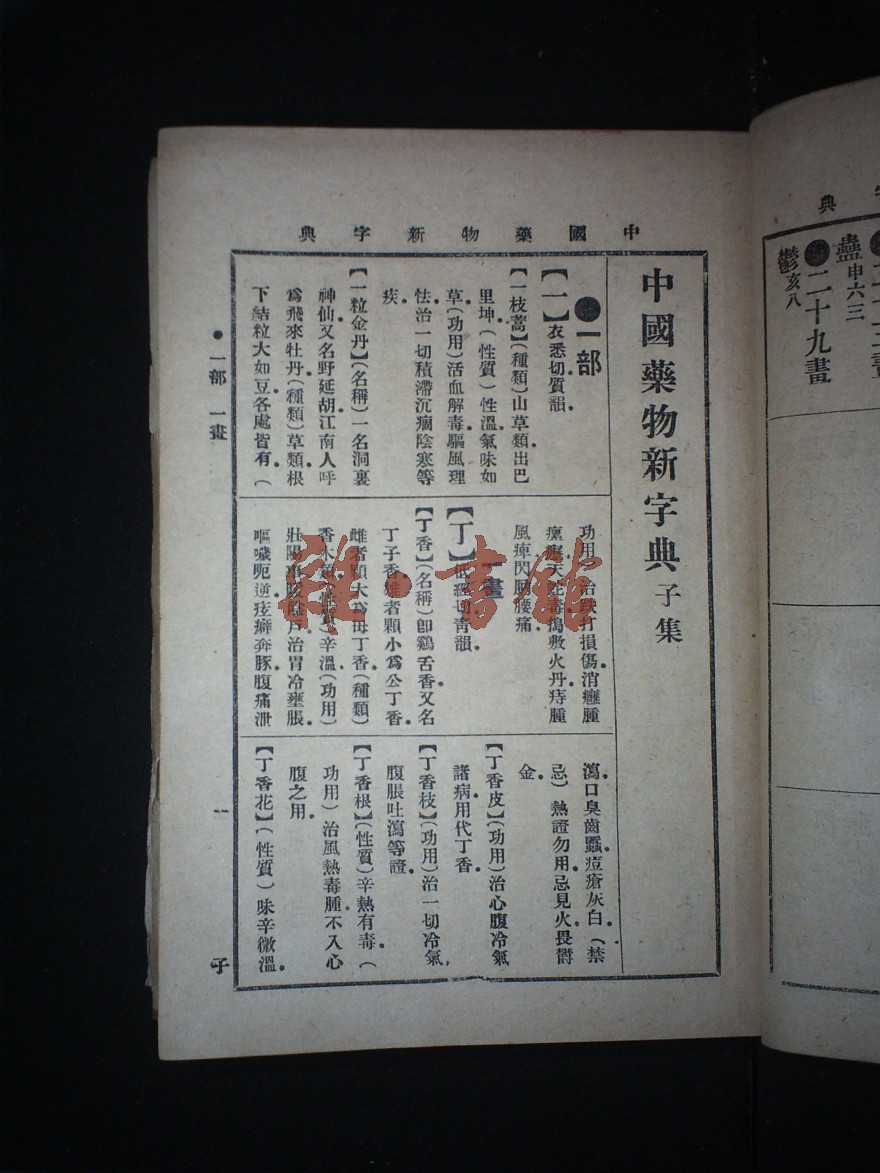 典
鬱亥八
●二十九畫
蠱申六三
中國藥物新字典
中國藥物新字典 子集
●一部
【一】衣悉切質韻。
【一枝蒿】（種類）山草類出巴
里坤（性質）性溫氣味如
草（功用）活血解毒驅風理
怯治一切積滯沉痼陰寒等
疾。
【一粒金丹】（名稱）一名洞裏
神仙又名野延胡江南人呼
爲飛來牡丹（種類）草類根
下結粒大如豆各處皆有。（
功用）治跌打損傷消癰腫
風痺閃腰痛
一畫
【丁】
【丁香】（名稱）卽鷄舌香又名
丁子香雄者顆小爲公丁香
雌者顆大爲母丁香（種類）
香木類（性質）辛溫（功用）
壯陽事暖陰戶治胃冷壅脹
嘔噦呃逆痃癖奔豚腹痛泄
瀉口臭齒䘌痘瘡灰白。（禁
忌）熱證勿用忌見火畏鬱
金。
【丁香皮】（功用）治心腹冷氣
諸病用代丁香。
【丁香枝】（功用）治一切冷氣
腹脹吐瀉等證。
【丁香根】（性質）辛熱有毒。（
功用）治風熱毒腫不入心
腹之用。
【丁香花】（性質）味辛微溫。
●一部 一畫
一
子
雜·書館